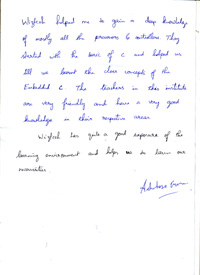 helped me to gain a deep knowledge
of mostly all the processors & controllers. They
started with the basic of c and helped us
till we learnt the class concepts of the
Embedded C. The teachers in this institute
are very friendly and have a very good
knowledge in their respective areas.
has quite a good exposure of the
learning environment and helps us to learn our